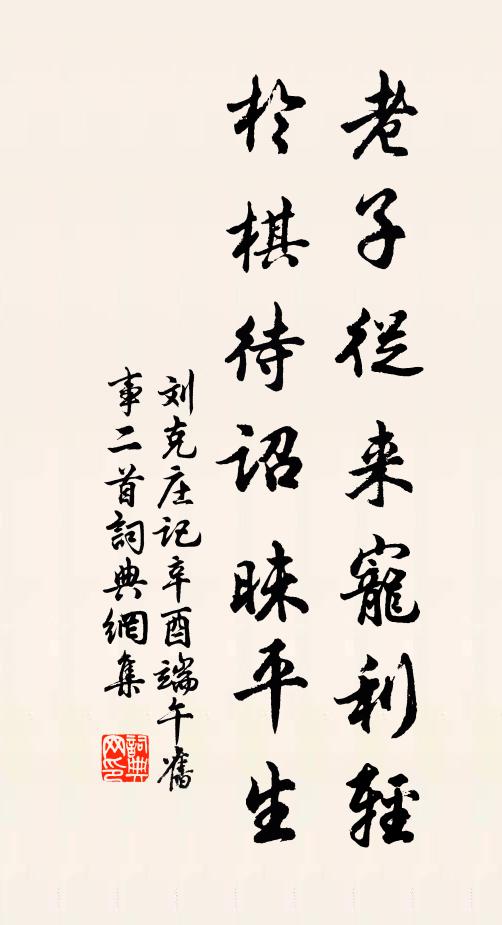 老子從来寵利輕
於棋待詔昧平生
刘克庄记辛酉端午舊
事二首詞典網集
詞典
网印